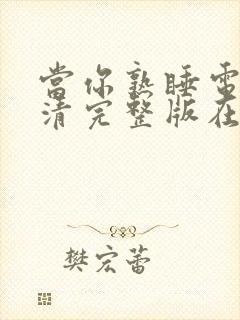 當你熟睡電
清完整版在
樊宏蕾